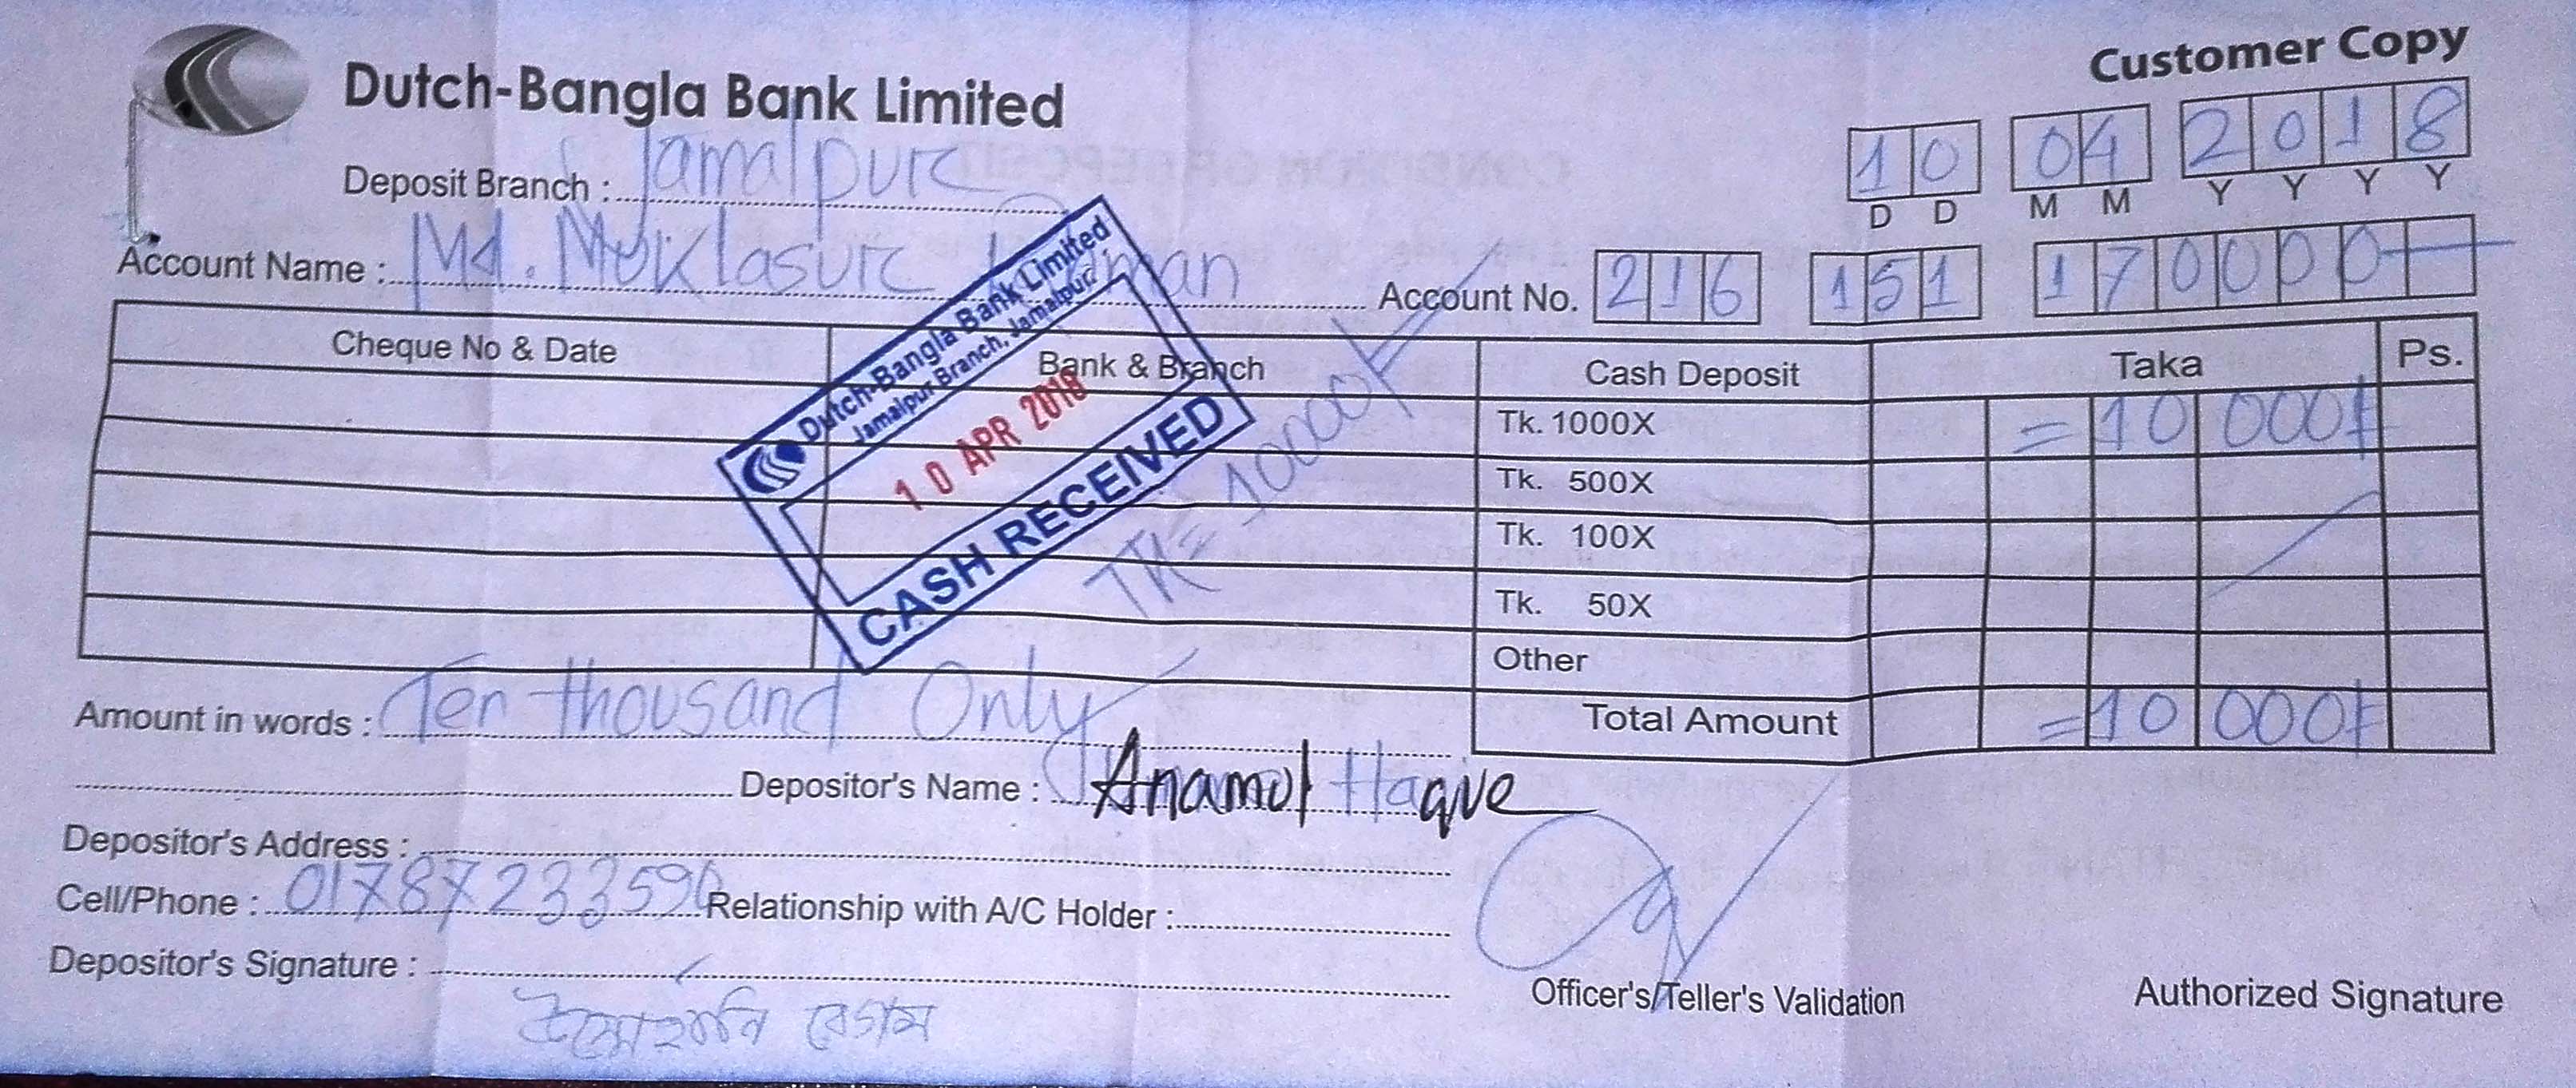 Customer Copy
Dutch-Bangla Bank Limited
10 04 2018
D D M M Y Y Y Y
Deposit Branch : Jamalpur
Account Name : Md. Muklasur
Account No. 216 151 170000
Cheque No & Date Bank & Branch Cash Deposit Taka Ps.
Tk. 1000X = 10 000/-
Tk. 500X
Tk. 100X
Tk. 50X
Other
Total Amount = 10 000/-
Dutch-Bangla Bank Limited
Jamalpur Branch, Jamalpur
10 APR 2018
CASH RECEIVED
TK= 10000/-
Amount in words : Ten thousand Only
Depositor's Name : Anamul Haque
Depositor's Address :
Cell/Phone : Relationship with A/C Holder :
Depositor's Signature :
বেগম
Officer's/Teller's Validation
Authorized Signature